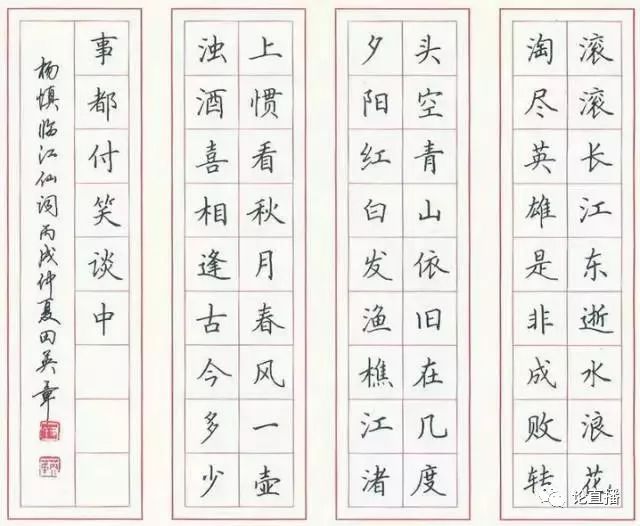 滚滚长江东逝水浪花
淘尽英雄是非成败转
头空青山依旧在几度
夕阳红白发渔樵江渚
上惯看秋月春风一壶
浊酒喜相逢古今多少
事都付笑谈中
杨慎临江仙词丙戌仲夏田英章
论直播